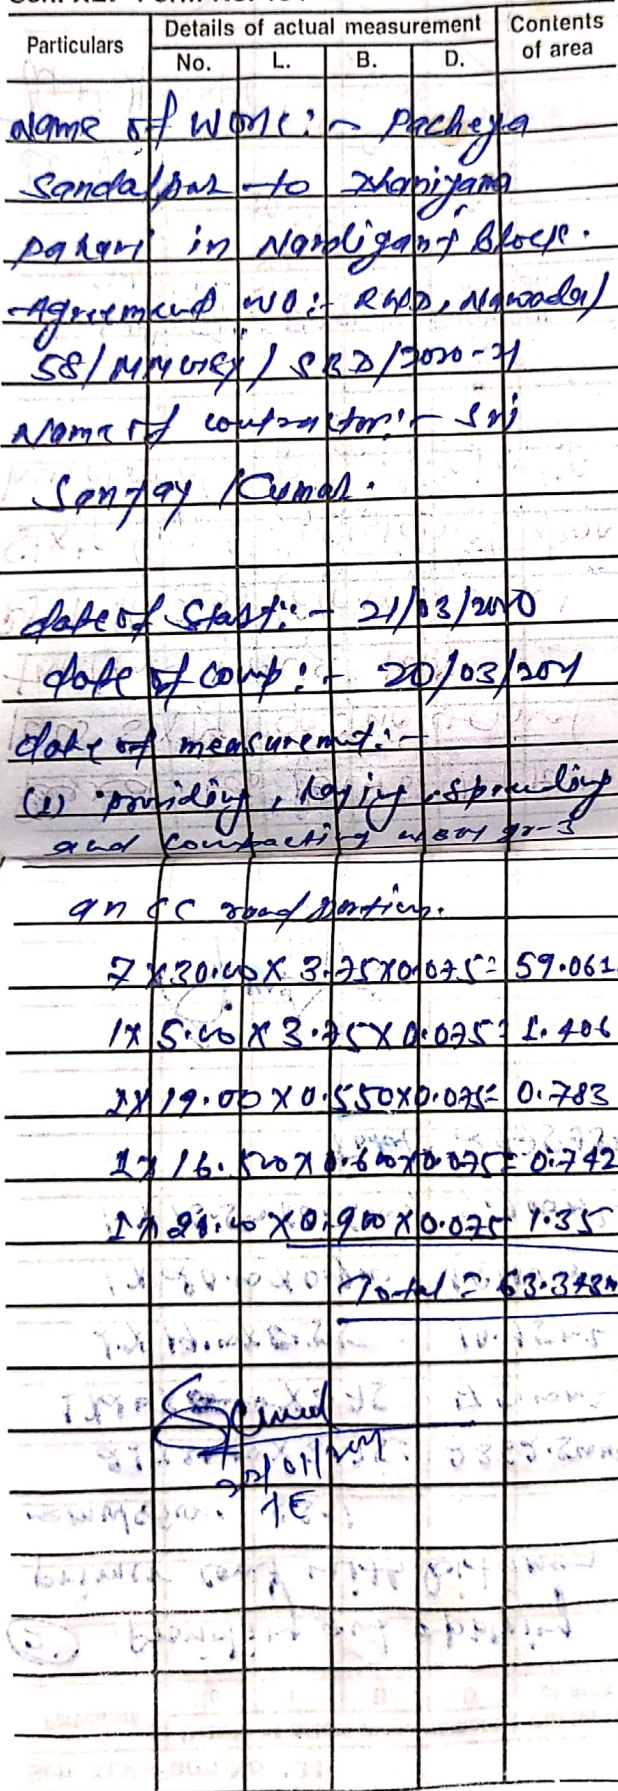 Particulars Details of actual measurement Contents of area
No. L. B. D.
Name of Work:- Pacheya
Sandalpur to
Pahari in Nardiganj Block.
Agreement NO:- RWD, Nawada/
58/MMGSY/SRD/2020-21
Name of contractor:- Sri
Sanjay Kumar.
date of Start:- 21/03/2020
date of comp:- 20/03/2021
date of measuremt:-
(1) providing, laying, spreading
and compacting WBM gr-3
in CC road portion.
7 x 30.00 x 3.75 x 0.075 = 59.062
1 x 5.00 x 3.75 x 0.075 = 1.406
1 x 19.00 x 0.550 x 0.075 = 0.783
1 x 16.500 x 0.600 x 0.075 = 0.742
1 x 20.00 x 0.900 x 0.075 1.35
Total = 63.343m
JE